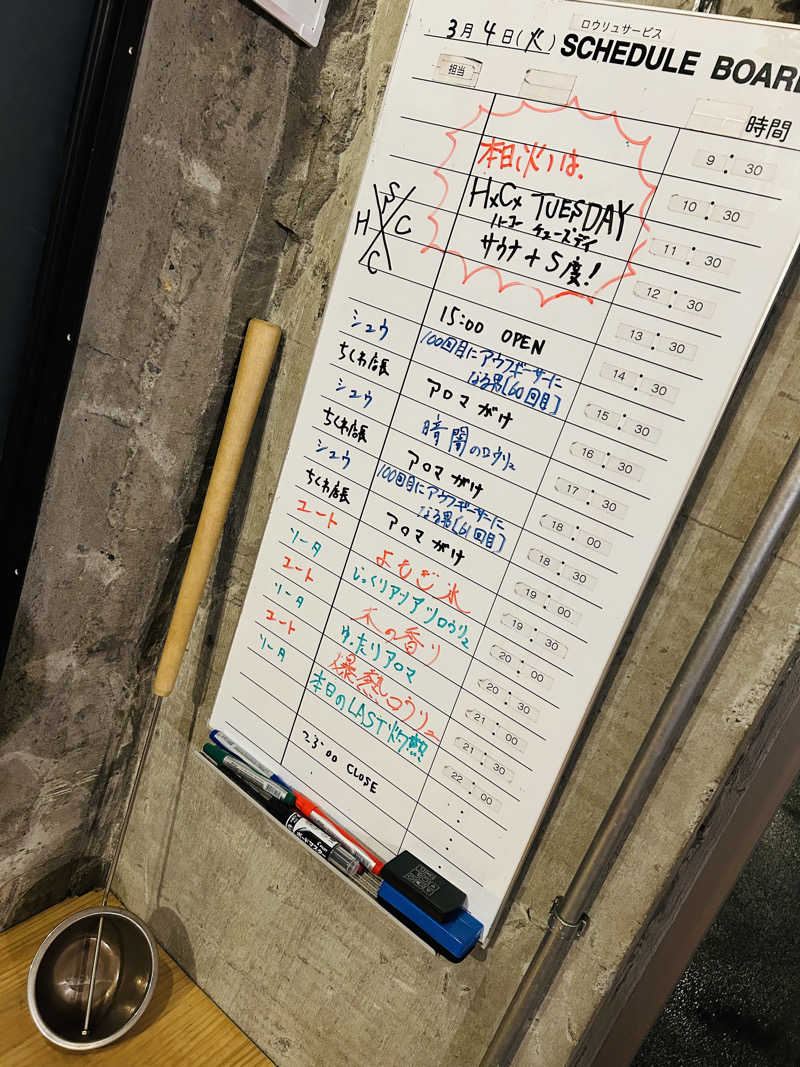 ロウリュサービス
3月4日(火) SCHEDULE BOARD
担当
時間
本日(火)は、
HxCx TUESDAY
ハーコー チューズデイ
サウナ+5度!
S
H C
C
9:30
10:30
11:30
12:30
15:00 OPEN 13:30
シュウ 100回目にアウフギーサーに
なる男[60回目] 14:30
ちくわ店長 アロマがけ 15:30
シュウ 暗闇のロウリュ 16:30
ちくわ店長 アロマがけ 17:30
シュウ 100回目にアウフギーサーに
なる男[61回目] 18:00
ちくわ店長 アロマがけ 18:30
ユート よもぎ氷 19:00
ソータ じっくりアツアツロウリュ 19:30
ユート 木の香り 20:00
ソータ ゆったりアロマ 20:30
ユート 爆熱ロウリュ 21:00
ソータ 本日のLAST灼熱 21:30
22:00
23:00 CLOSE
ボードマスター